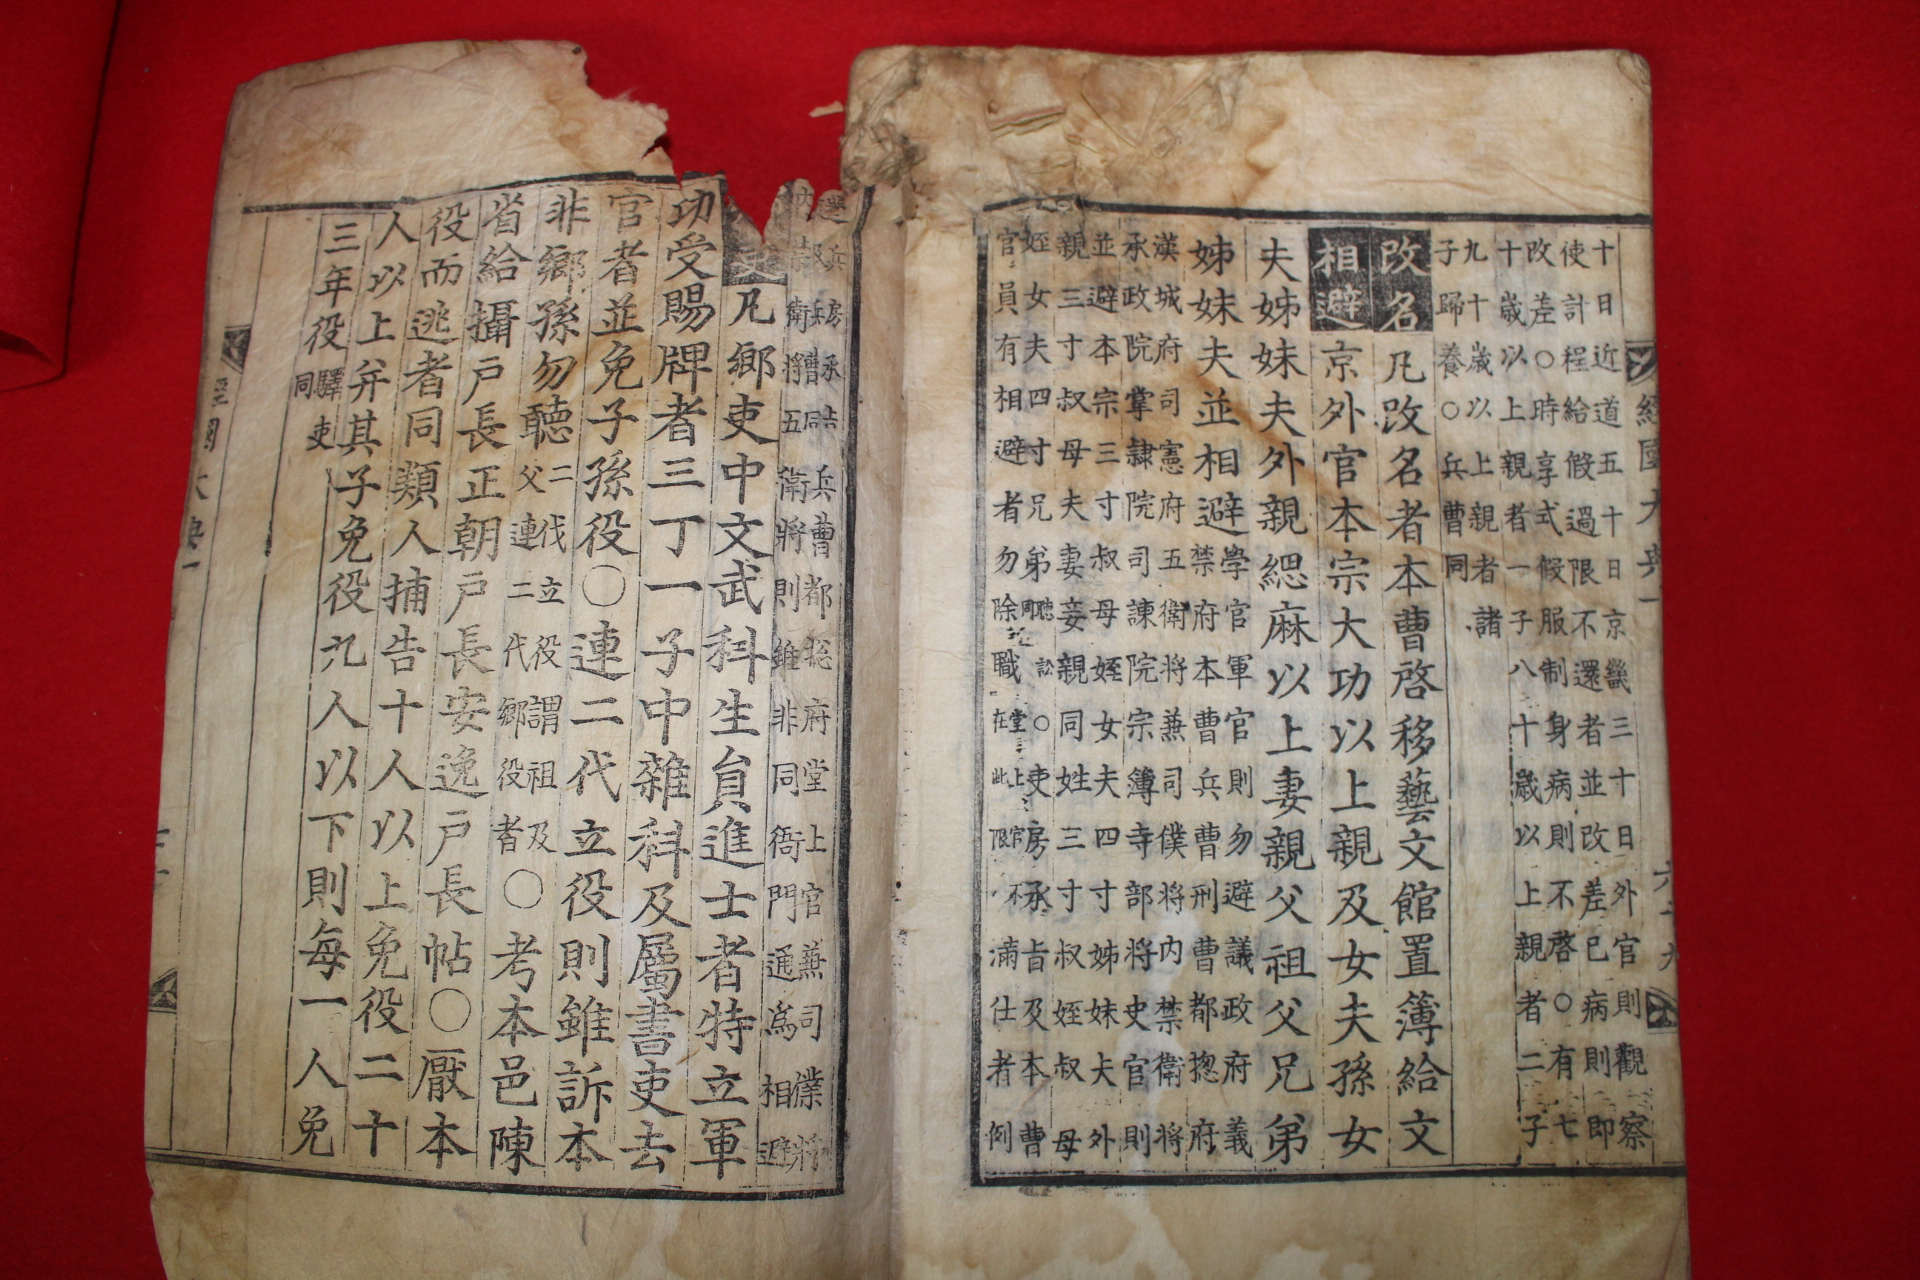 經國大典一 六十九
十日近道五十日京畿三十日外官則觀察
使計程給假過限不還者並改差已病則即
改差○時享式假服制身病則不啓○有七
十歲以上親者一子八十歲以上親者二子
九十歲以上親者諸
子歸養○兵曹同
改名 凡改名者本曹啓移藝文館置簿給文
相避 京外官本宗大功以上親及女夫孫女
夫姊妹夫外親緦麻以上妻親父祖父兄弟
姊妹夫並相避
學官軍官則勿避議政府義
禁府本曹兵曹刑曹都摠府
漢城府司憲府五衛將兼司僕將內禁衛將
承政院掌隷院司諫院宗簿寺部將史官則
並避本宗三寸叔母姪女夫四寸姊妹夫外
親三寸叔母夫妻妾親同姓三寸叔姪叔母
姪女夫四寸兄弟○吏房承旨及本曹
官員有相避者勿除職在此限不滿仕者例
兵房承旨兵曹都摠府堂上官兼司僕將
內禁衛將五衛將則雖非同衙門通爲相避
凡鄕吏中文武科生員進士者特立軍
功受賜牌者三丁一子中雜科及屬書吏去
官者並免子孫役○連二代立役則雖訴本
非鄕孫勿聽
二代立役謂祖及
父連二代鄕役者
○考本邑陳
省給攝戶長正朝戶長安逸戶長帖○厭本
役而逃者同類人捕告十人以上免役二十
人以上幷其子免役九人以下則每一人免
三年役
驛吏
同
經國大典一